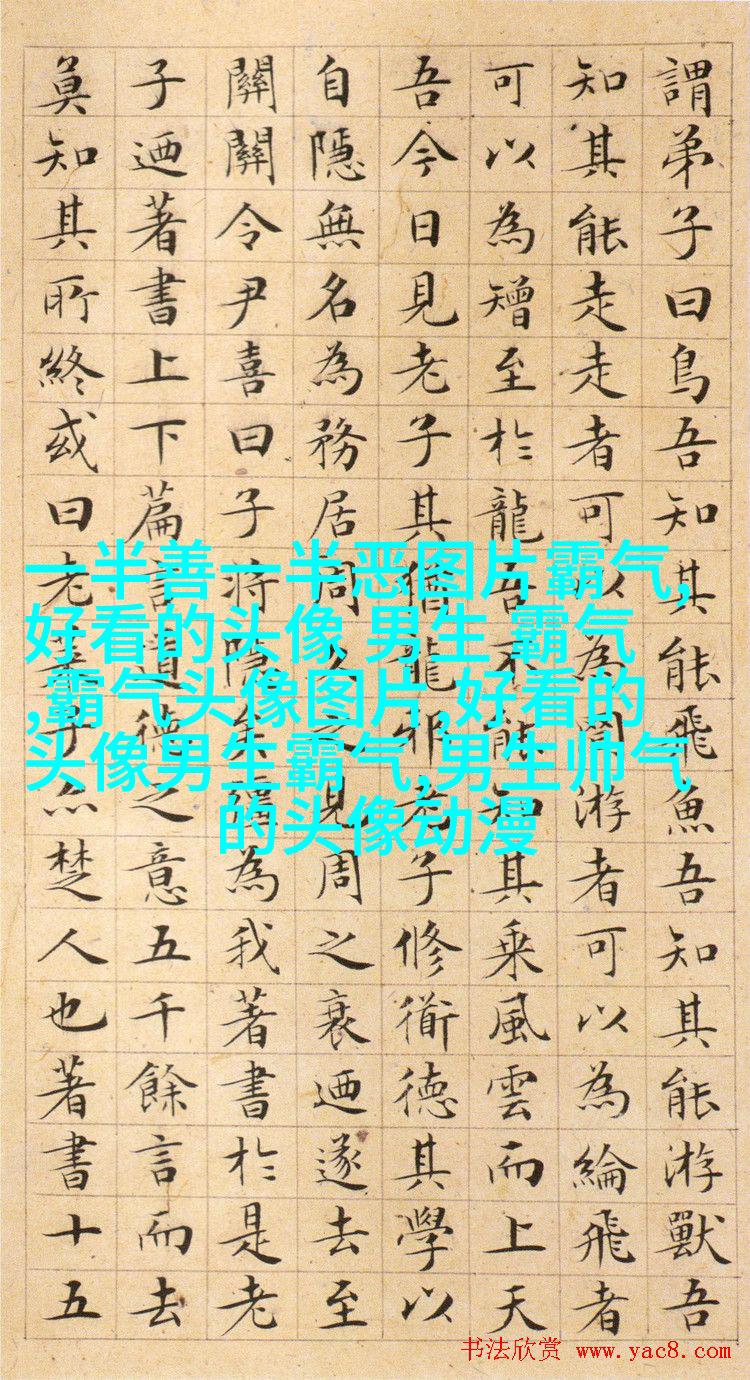 謂弟子曰鳥吾知其能飛魚吾知其能游獸吾
知其能走走者可以為罔游者可以為綸飛者
可以為矰至於龍吾不能知其乘風雲而上天
吾今日見老子其猶龍邪老子修衜德其學以
自隱無名為務居周久之見周之衰迺遂去至
關關令尹喜曰子將隱矣彊為我著書於是老
子迺著書上下篇言道德之意五千餘言而去
莫知其所終或曰老萊子亦楚人也著書十五
一半善一半恶图片霸气,
好看的头像 男生 霸气
,霸气头像图片,好看的
头像男生霸气,男生帅气
的头像动漫
书法欣赏 www.yac8.com